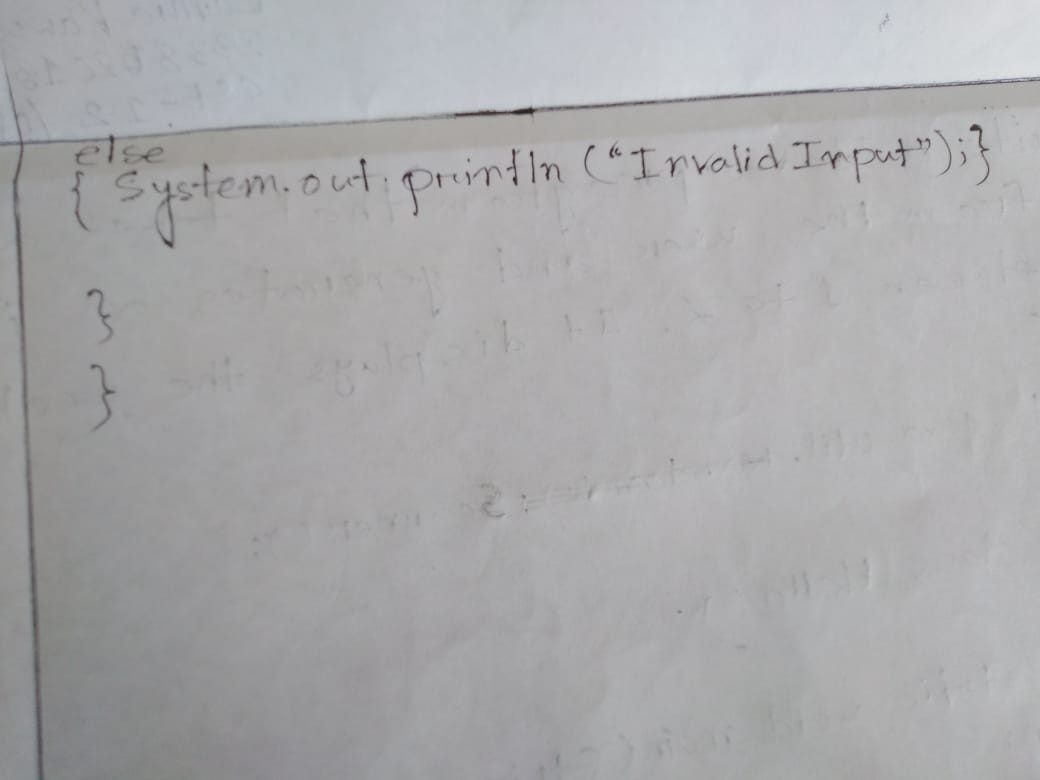 else
{ System.out.println ("Invalid Input");}
}
}